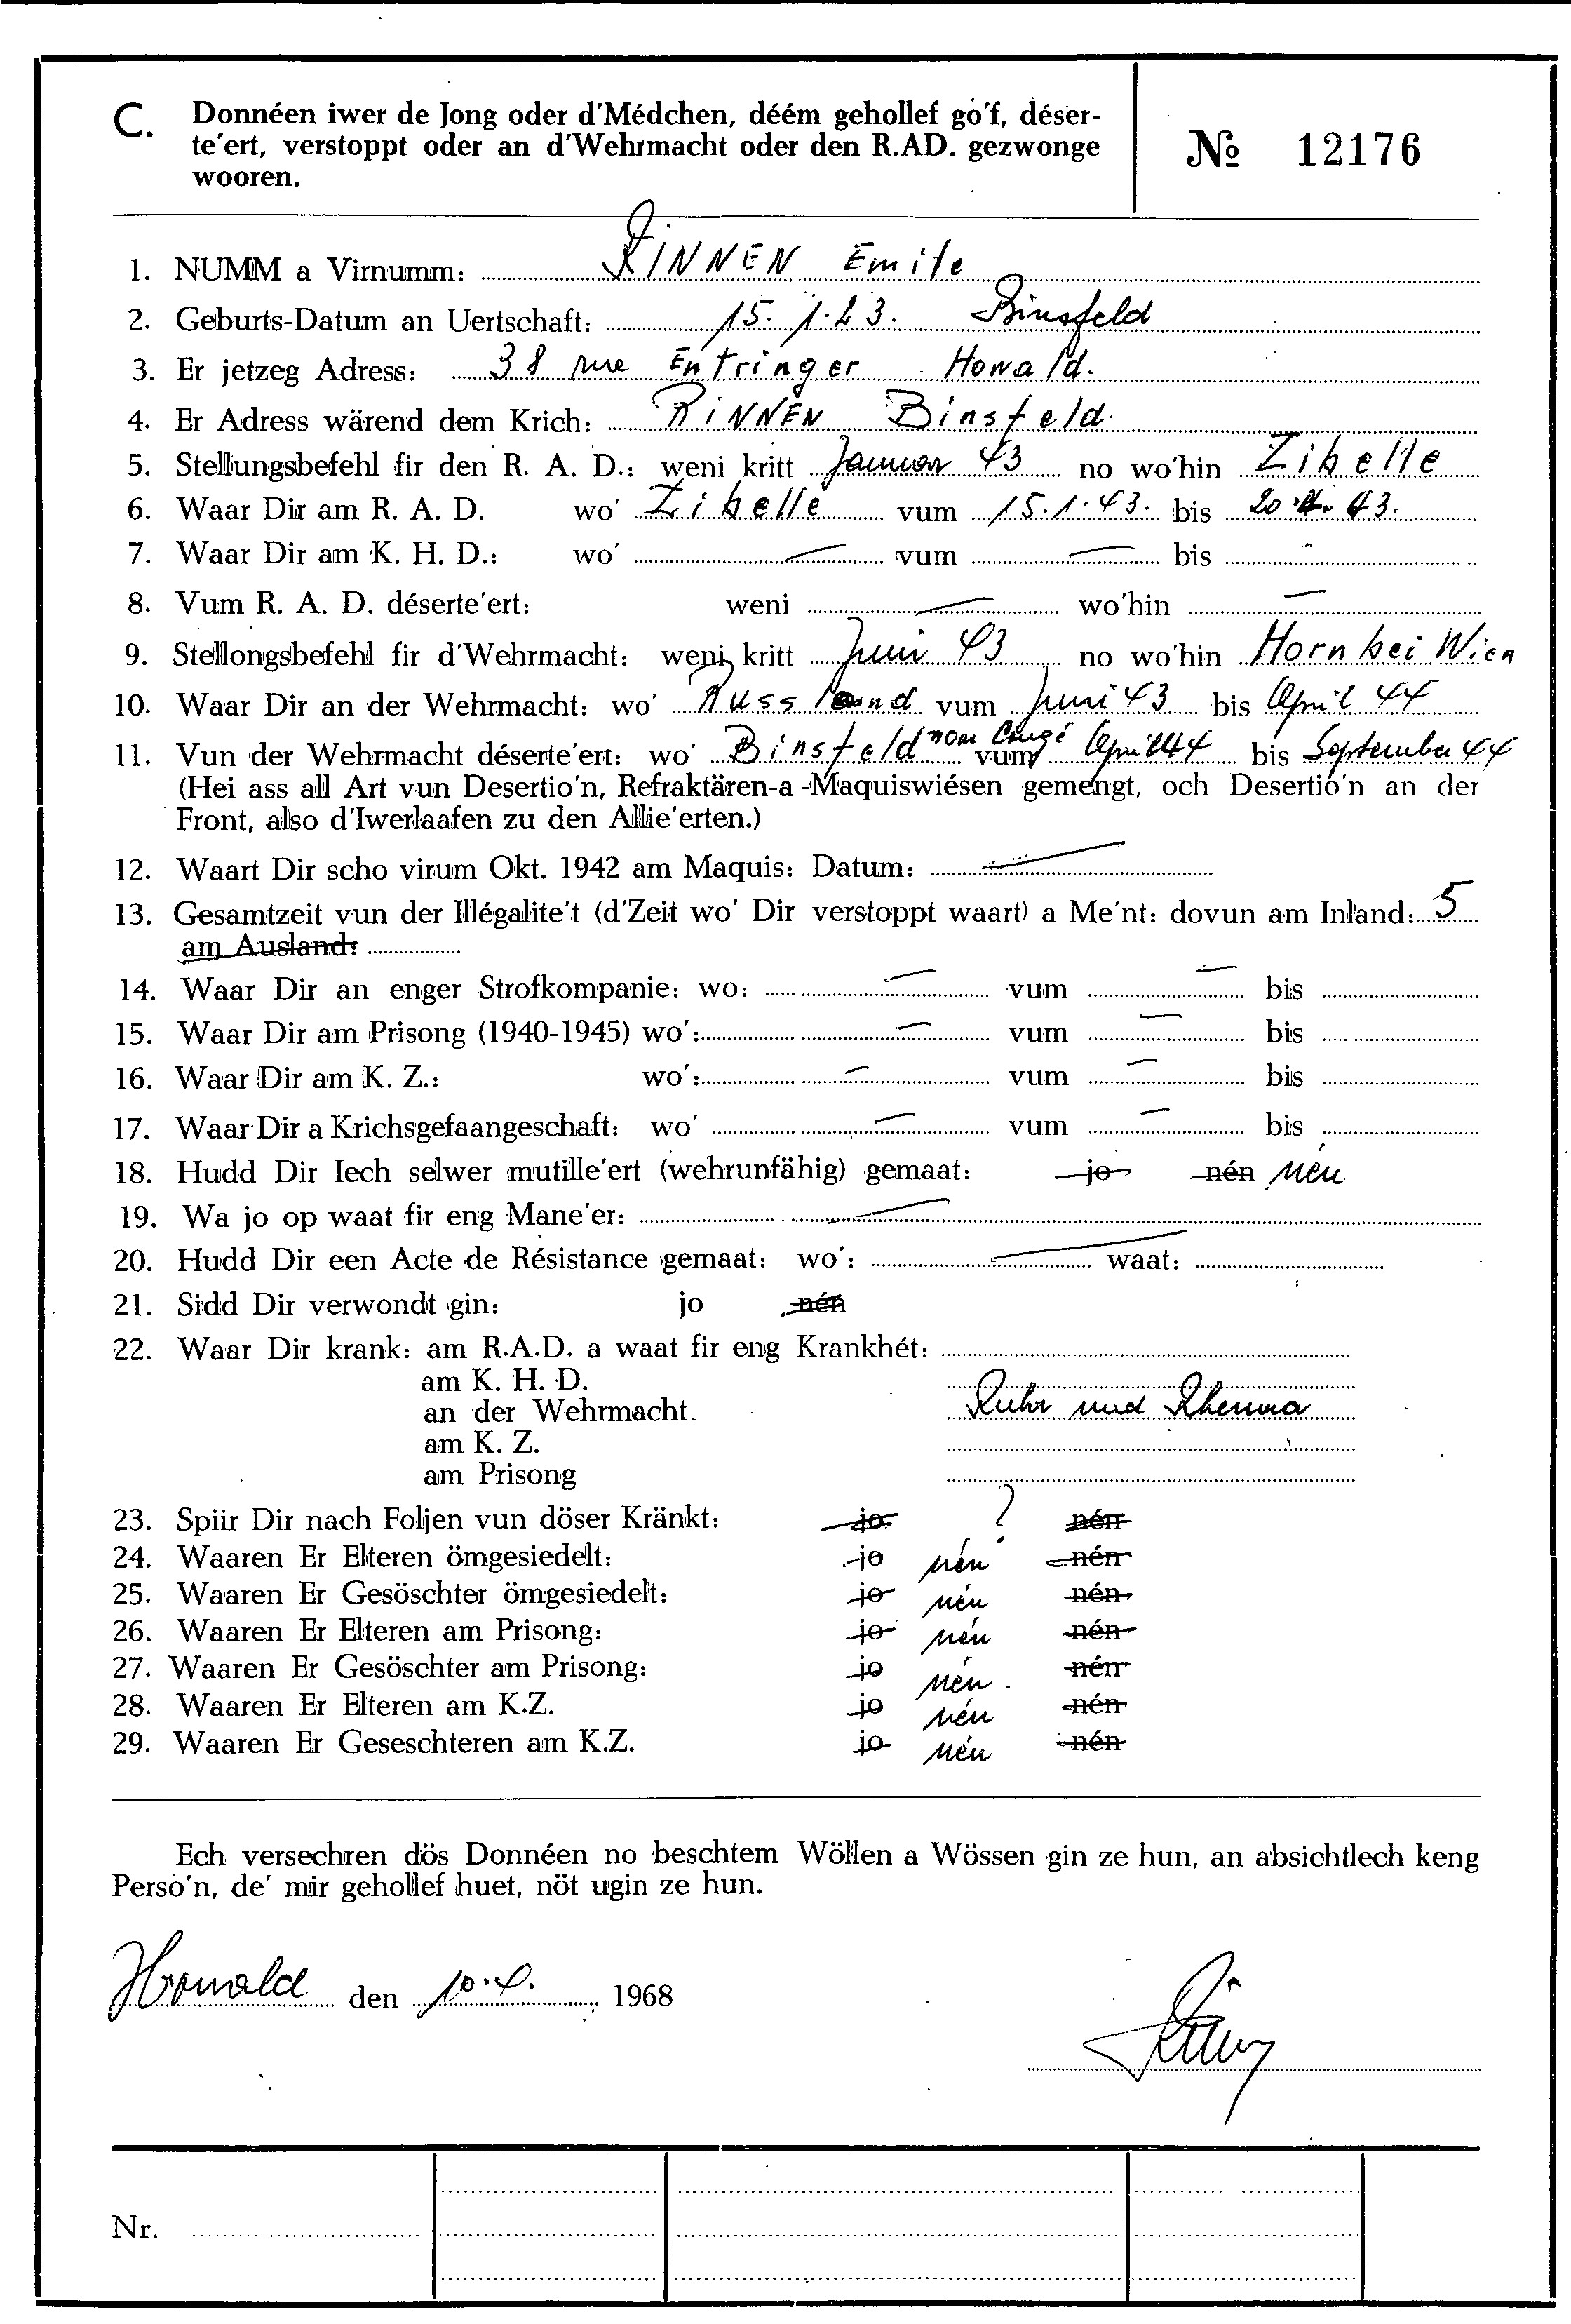 C. Donnéen iwer de Jong oder d'Médchen, déém gehollef go'f, déser-
te'ert, verstoppt oder an d'Wehrmacht oder den R.AD. gezwonge
wooren.
№ 12176
1. NUMM a Virnumm: RINNEN Emile
2. Geburts-Datum an Uertschaft: 15. 1. 23. Binsfeld
3. Er jetzeg Adress: 38 rue Entringer Howald.
4. Er Adress wärend dem Krich: RINNEN Binsfeld.
5. Stellungsbefehl fir den R. A. D.: weni kritt Januar 43 no wo'hin Zibelle
6. Waar Dir am R. A. D. wo' Zibelle vum 15.1.43. bis 20.4.43.
7. Waar Dir am K. H. D.: wo' — vum — bis -
8. Vum R. A. D. déserte'ert: weni — wo'hin —
9. Stellongsbefehl fir d'Wehrmacht: weni kritt Juni 43 no wo'hin Horn bei Wien
10. Waar Dir an der Wehrmacht: wo' Russland vum Juni 43 bis April 44
11. Vun der Wehrmacht déserte'ert: wo' Binsfeld vum April 44 bis September 44
(Hei ass all Art vun Desertio'n, Refraktären-a -Maquiswiésen gemengt, och Desertio'n an der
Front, also d'Iwerlaafen zu den Allie'erten.)
12. Waart Dir scho virum Okt. 1942 am Maquis: Datum: —
13. Gesamtzeit vun der Illégalite't (d'Zeit wo' Dir verstoppt waart) a Me'nt: dovun am Inland: 5
am Ausland:
14. Waar Dir an enger Strofkompanie: wo: — vum — bis
15. Waar Dir am Prisong (1940-1945) wo': — vum — bis
16. Waar Dir am K. Z.: wo': — vum — bis
17. Waar Dir a Krichsgefaangeschaft: wo' — vum — bis
18. Hudd Dir Iech selwer mutille'ert (wehrunfähig) gemaat: jo nén nén
19. Wa jo op waat fir eng Mane'er: —
20. Hudd Dir een Acte de Résistance gemaat: wo': — waat:
21. Sidd Dir verwondt gin: jo nén
22. Waar Dir krank: am R.A.D. a waat fir eng Krankhét:
am K. H. D.
an der Wehrmacht. Ruhr und Rheuma
am K. Z.
am Prisong
23. Spiir Dir nach Foljen vun döser Kränkt: jo ? nén
24. Waaren Er Elteren ömgesiedelt: jo nén nén
25. Waaren Er Gesöschter ömgesiedelt: jo nén nén
26. Waaren Er Elteren am Prisong: jo nén nén
27. Waaren Er Gesöschter am Prisong: jo nén nén
28. Waaren Er Elteren am K.Z. jo nén nén
29. Waaren Er Geseschteren am K.Z. jo nén nén
Ech versechren dös Donnéen no beschtem Wöllen a Wössen gin ze hun, an absichtlech keng
Perso'n, de' mir gehollef huet, nöt ugin ze hun.
Howald den 10.4. 1968
Nr.